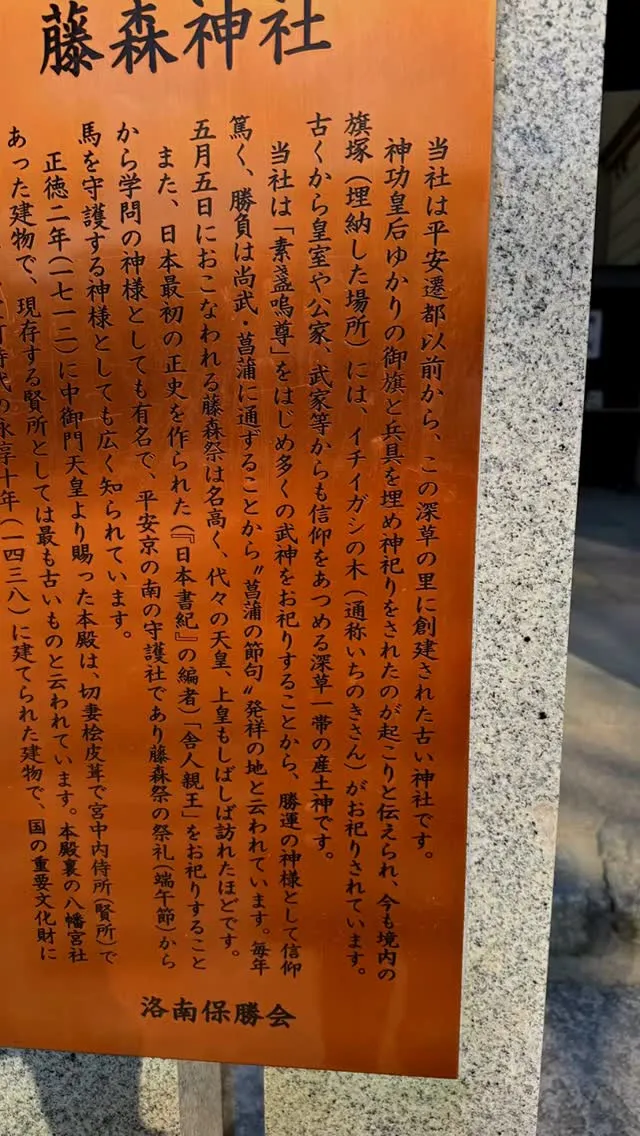 藤森神社
当社は平安遷都以前から、この深草の里に創建された古い神社です。
神功皇后ゆかりの御旗と兵具を埋め神祀りをされたのが起こりと伝えられ、今も境内の
旗塚（埋納した場所）には、イチイガシの木（通称いちのきさん）がお祀りされています。
古くから皇室や公家、武家等からも信仰をあつめる深草一帯の産土神です。
当社は「素盞嗚尊」をはじめ多くの武神をお祀りすることから、勝運の神様として信仰
篤く、勝負は尚武・菖蒲に通ずることから〃菖蒲の節句〃発祥の地と云われています。毎年
五月五日におこなわれる藤森祭は名高く、代々の天皇、上皇もしばしば訪れたほどです。
また、日本最初の正史を作られた（『日本書紀』の編者）「舎人親王」をお祀りすること
から学問の神様としても有名で、平安京の南の守護社であり藤森祭の祭礼（端午節）から
馬を守護する神様としても広く知られています。
正徳二年（一七一二）に中御門天皇より賜った本殿は、切妻桧皮葺で宮中内侍所（賢所）で
あった建物で、現存する賢所としては最も古いものと云われています。本殿裏の八幡宮社
時代の永享十年（一四三八）に建てられた建物で、国の重要文化財に
洛南保勝会